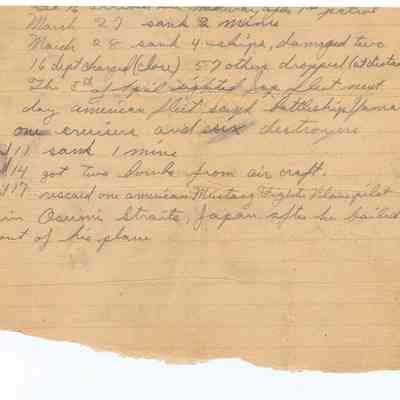 arrived in midway after 1st patrol
March 27 sank 2 mine
March 28 sank 4 ships, damaged two
16 dept charged (close) 57 other dropped (at distan
The 5th of April sighted Jap fleet next
day american fleet sank battleship Yama
one cruisers and six destroyers
11 sank 1 mine
14 got two bombs from air craft.
17 rescued one american Mustang Fighter Plane pilot
in Osumi Straits, Japan after he bailed
out of his plane